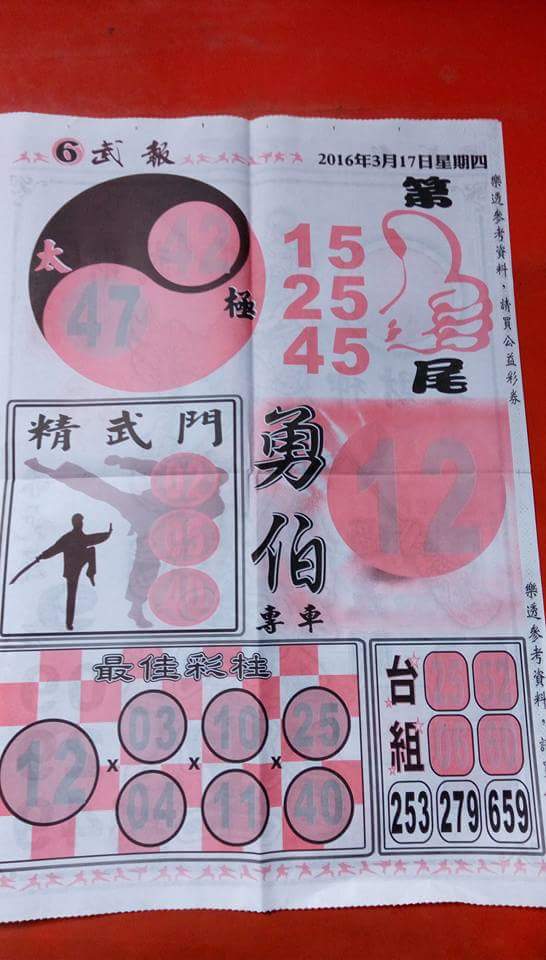 6 武報
2016年3月17日星期四
樂透參考資料，請買公益彩券
太極
42
47
第尾
15
25
45
精武門
02
勇伯
專車
12
最佳彩柱
12 x 03 x 10 x 25
04 11 40
台組
25 52
253 279 659
樂透參考資料，